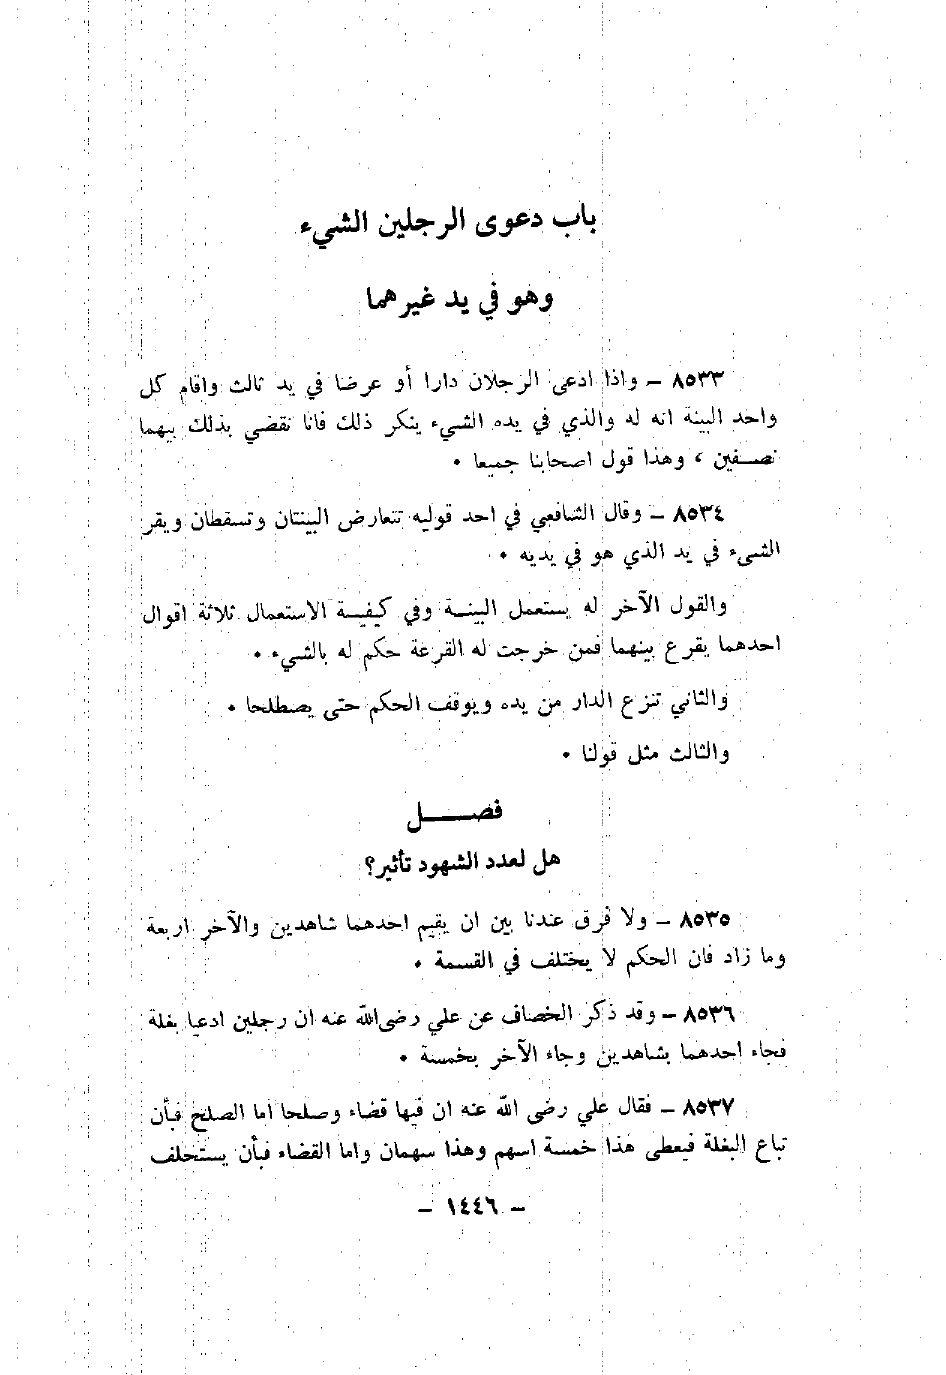 باب دعوى الرجلين الشيء
وهو في يد غيرهما
٨٥٣٣ – واذا ادعى الرجلان دارا أو عرضا في يد ثالث واقام كل
واحد البينة انه له والذي في يده الشيء ينكر ذلك فانا نقضي بذلك بينهما
نصفين ، وهذا قول اصحابنا جميعا ٠
٨٥٣٤ – وقال الشافعي في احد قوليه تتعارض البينتان وتسقطان ويقر
الشيء في يد الذي هو في يديه ٠
والقول الآخر له يستعمل البينة وفي كيفية الاستعمال ثلاثة اقوال
احدهما يقرع بينهما فمن خرجت له القرعة حكم له بالشيء ٠
والثاني تنزع الدار من يده ويوقف الحكم حتى يصطلحا ٠
والثالث مثل قولنا ٠
فصل
هل لعدد الشهود تأثير؟
٨٥٣٥ – ولا فرق عندنا بين ان يقيم احدهما شاهدين والآخر اربعة
وما زاد فان الحكم لا يختلف في القسمة ٠
٨٥٣٦ – وقد ذكر الخصاف عن علي رضى الله عنه ان رجلين ادعيا بغلة
فجاء احدهما بشاهدين وجاء الآخر بخمسة ٠
٨٥٣٧ – فقال علي رضى الله عنه ان فيها قضاء وصلحا اما الصلح فبأن
تباع البغلة فيعطى هذا خمسة اسهم وهذا سهمان واما القضاء فبأن يستحلف
– ١٤٤٦ –